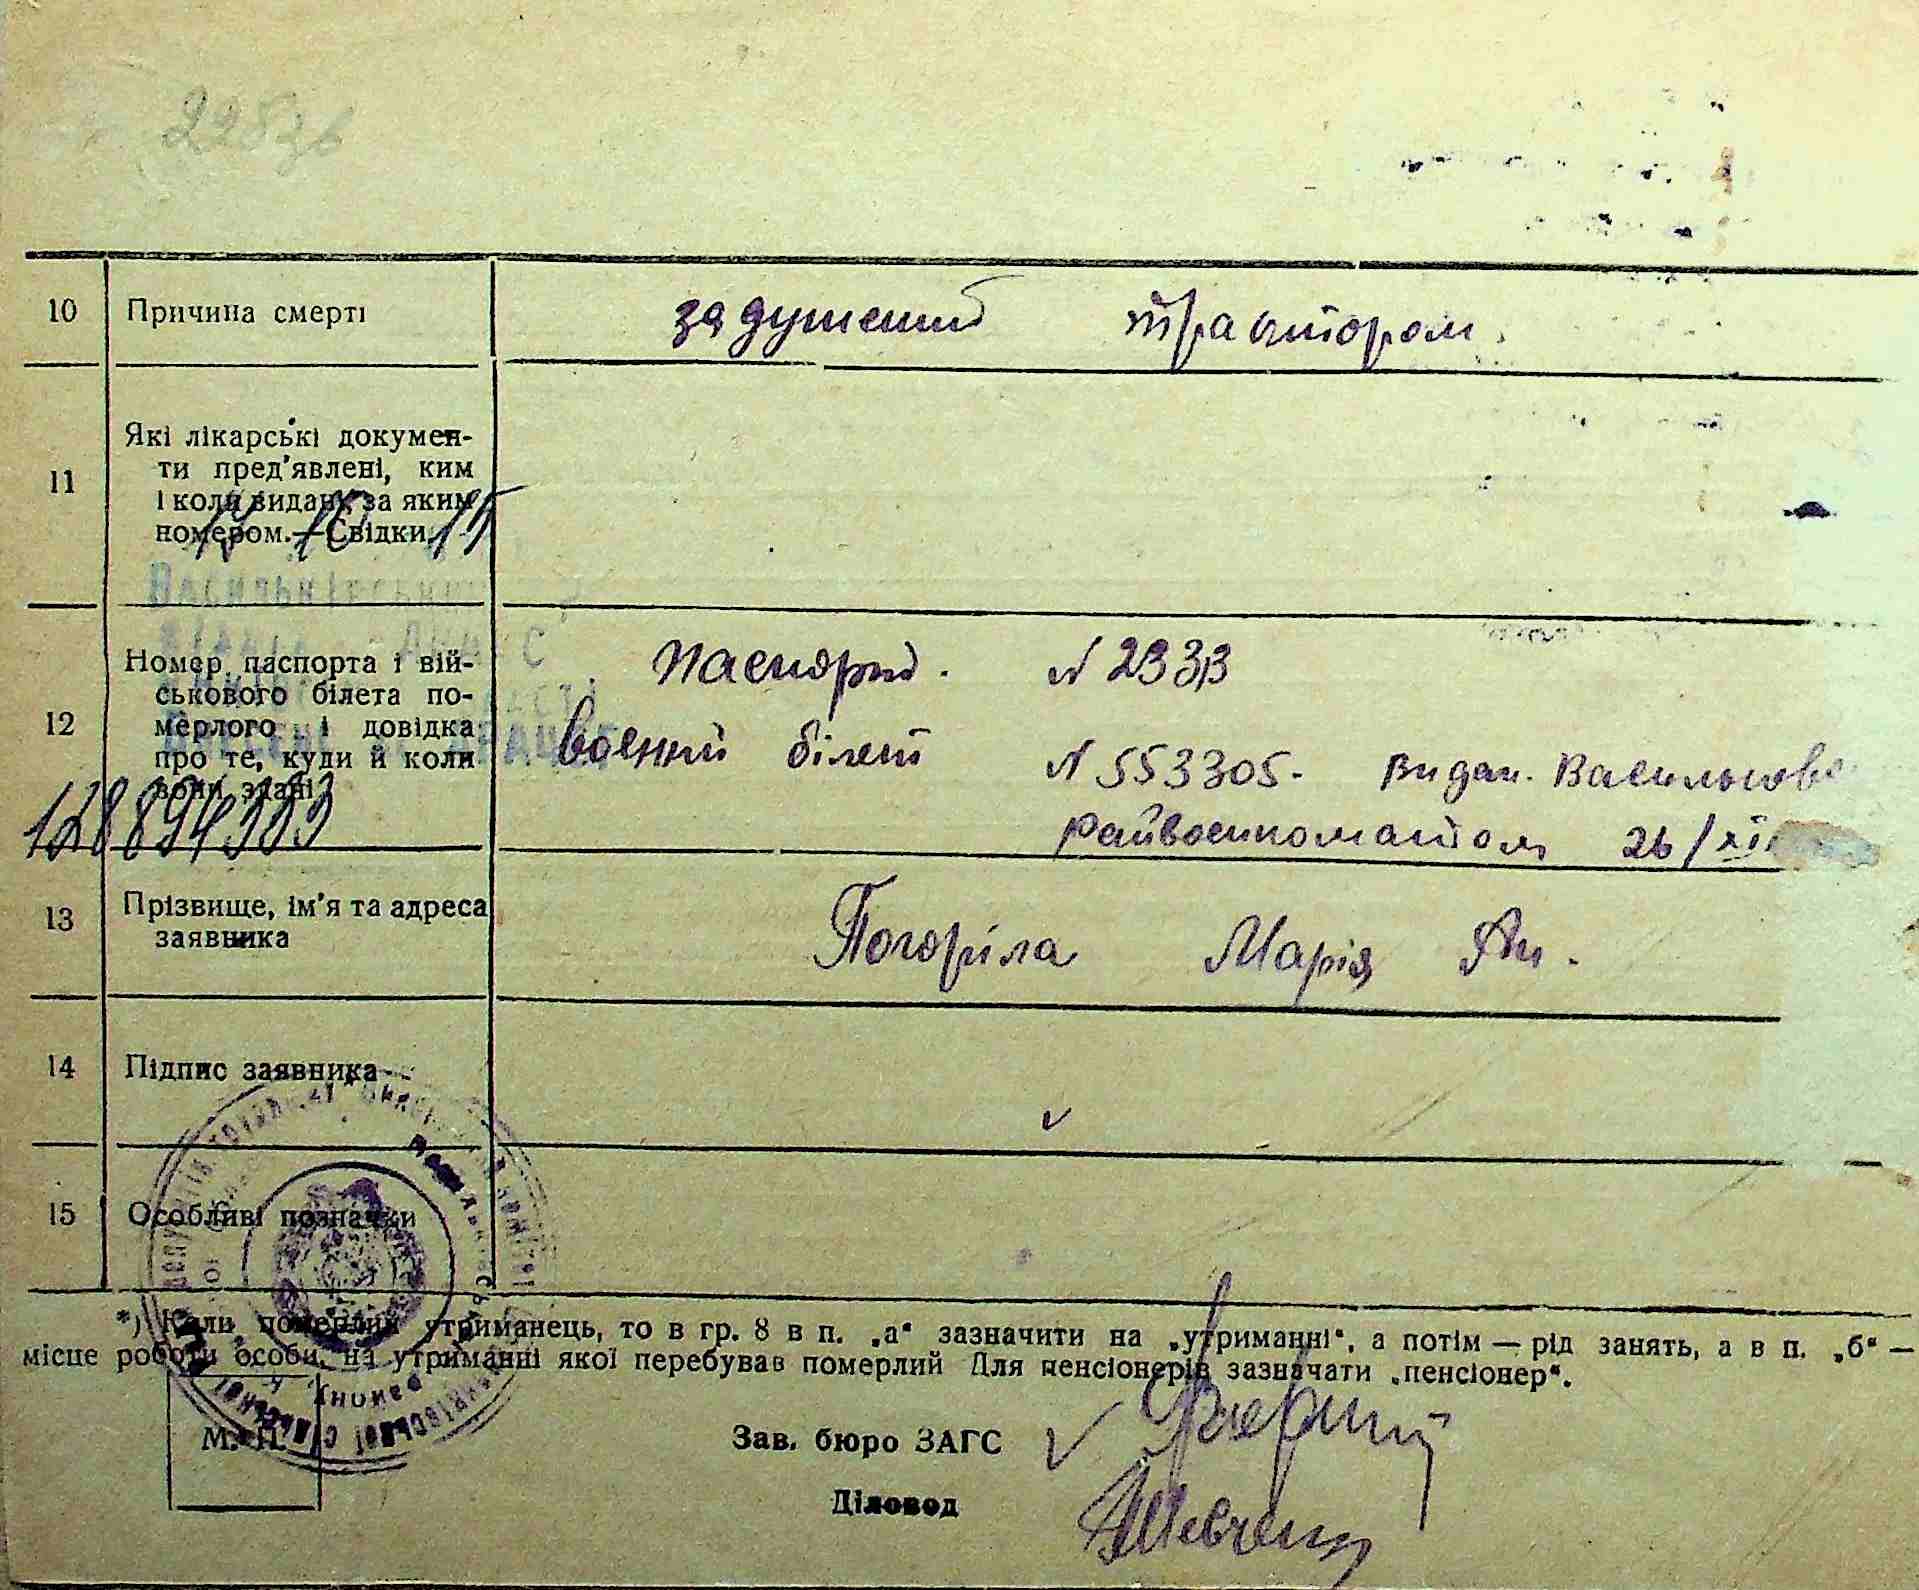 10 Причина смерті задушений трактором.
11 Які лікарські докумен-
ти пред'явлені, ким
і коли видані, за яким
номером.—Свідки.
12 Номер паспорта і вій-
ськового білета по-
мерлого і довідка
про те, куди й коли
вони здані
Паспорт. N 2333
воєнний білет N 553305. Видан. Васильковс
райвоєнкоматом 26/XI
128894303
13 Прізвище, ім'я та адреса
заявника
Погоріла Марія Ан.
14 Підпис заявника
15 Особливі позначки
*) Коли померлий утриманець, то в гр. 8 в п. „а“ зазначити на „утриманні“, а потім — рід занять, а в п. „б“ —
місце роботи особи, на утриманні якої перебував померлий Для пенсіонерів зазначати „пенсіонер“.
М. П.
Зав. бюро ЗАГС
Діловод Шевченко